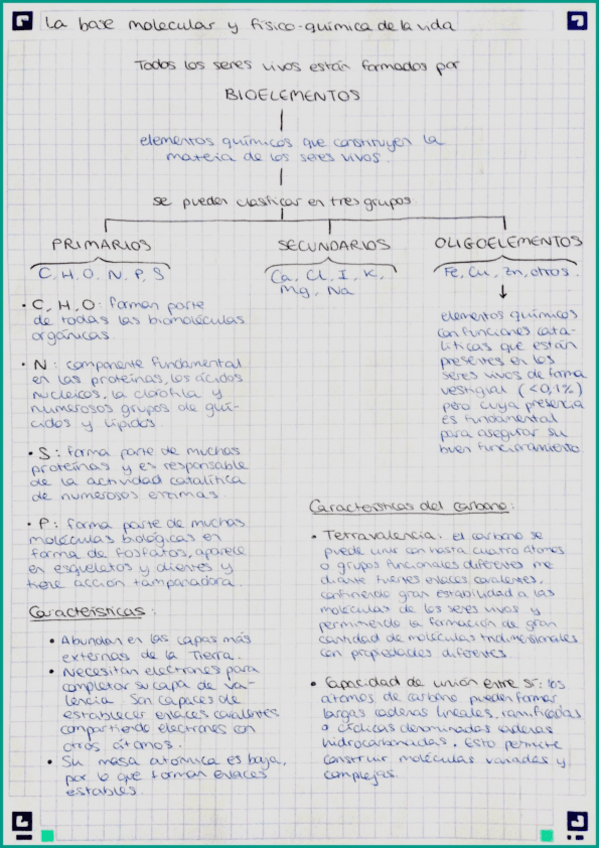 La base molecular y físico-química de la vida
Todos los seres vivos están formados por
BIOELEMENTOS
elementos químicos que constituyen la
materia de los seres vivos.
se pueden clasificar en tres grupos
PRIMARIOS
C, H, O, N, P, S
• C, H, O: forman parte
de todas las biomoléculas
orgánicas.
• N: componente fundamental
en las proteínas, los ácidos
nucleicos, la clorofila y
numerosos grupos de glú-
cidos y lípidos.
• S: forma parte de muchas
proteínas y es responsable
de la actividad catalítica
de numerosos enzimas.
• P: forma parte de muchas
moléculas biológicas en
forma de fosfatos, aparece
en esqueletos y dientes y
tiene acción tamponadora.
SECUNDARIOS
Ca, Cl, I, K,
Mg, Na
OLIGOELEMENTOS
Fe, Cu, Zn, otros.
elementos químicos
con funciones cata-
líticas que están
presentes en los
seres vivos de forma
vestigial (<0,1%)
pero cuya presencia
es fundamental
para asegurar su
buen funcionamiento.
Características:
• Abundan en las capas más
externas de la Tierra.
• Necesitan electrones para
completar su capa de va-
lencia. Son capaces de
establecer enlaces covalentes
compartiendo electrones con
otros átomos.
• Su masa atómica es baja,
por lo que forman enlaces
estables.
Características del carbono:
• Tetravalencia: el carbono se
puede unir con hasta cuatro átomos
o grupos funcionales diferentes me
diante fuertes enlaces covalentes,
confiriendo gran estabilidad a las
moléculas de los seres vivos y
permitiendo la formación de gran
cantidad de moléculas tridimensionales
con propiedades diferentes.
• Capacidad de unión entre sí: los
átomos de carbono pueden formar
largas cadenas lineales, ramificadas
o cíclicas denominadas cadenas
hidrocarbonadas. Esto permite
construir moléculas variadas y
complejas.